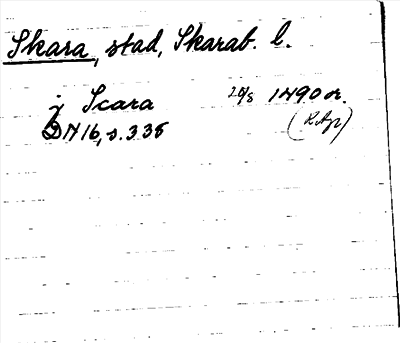 Skara, stad, Skarab. l.
j Scara 20/8 1490 or.
DN 16, s. 335 (R.Ap)